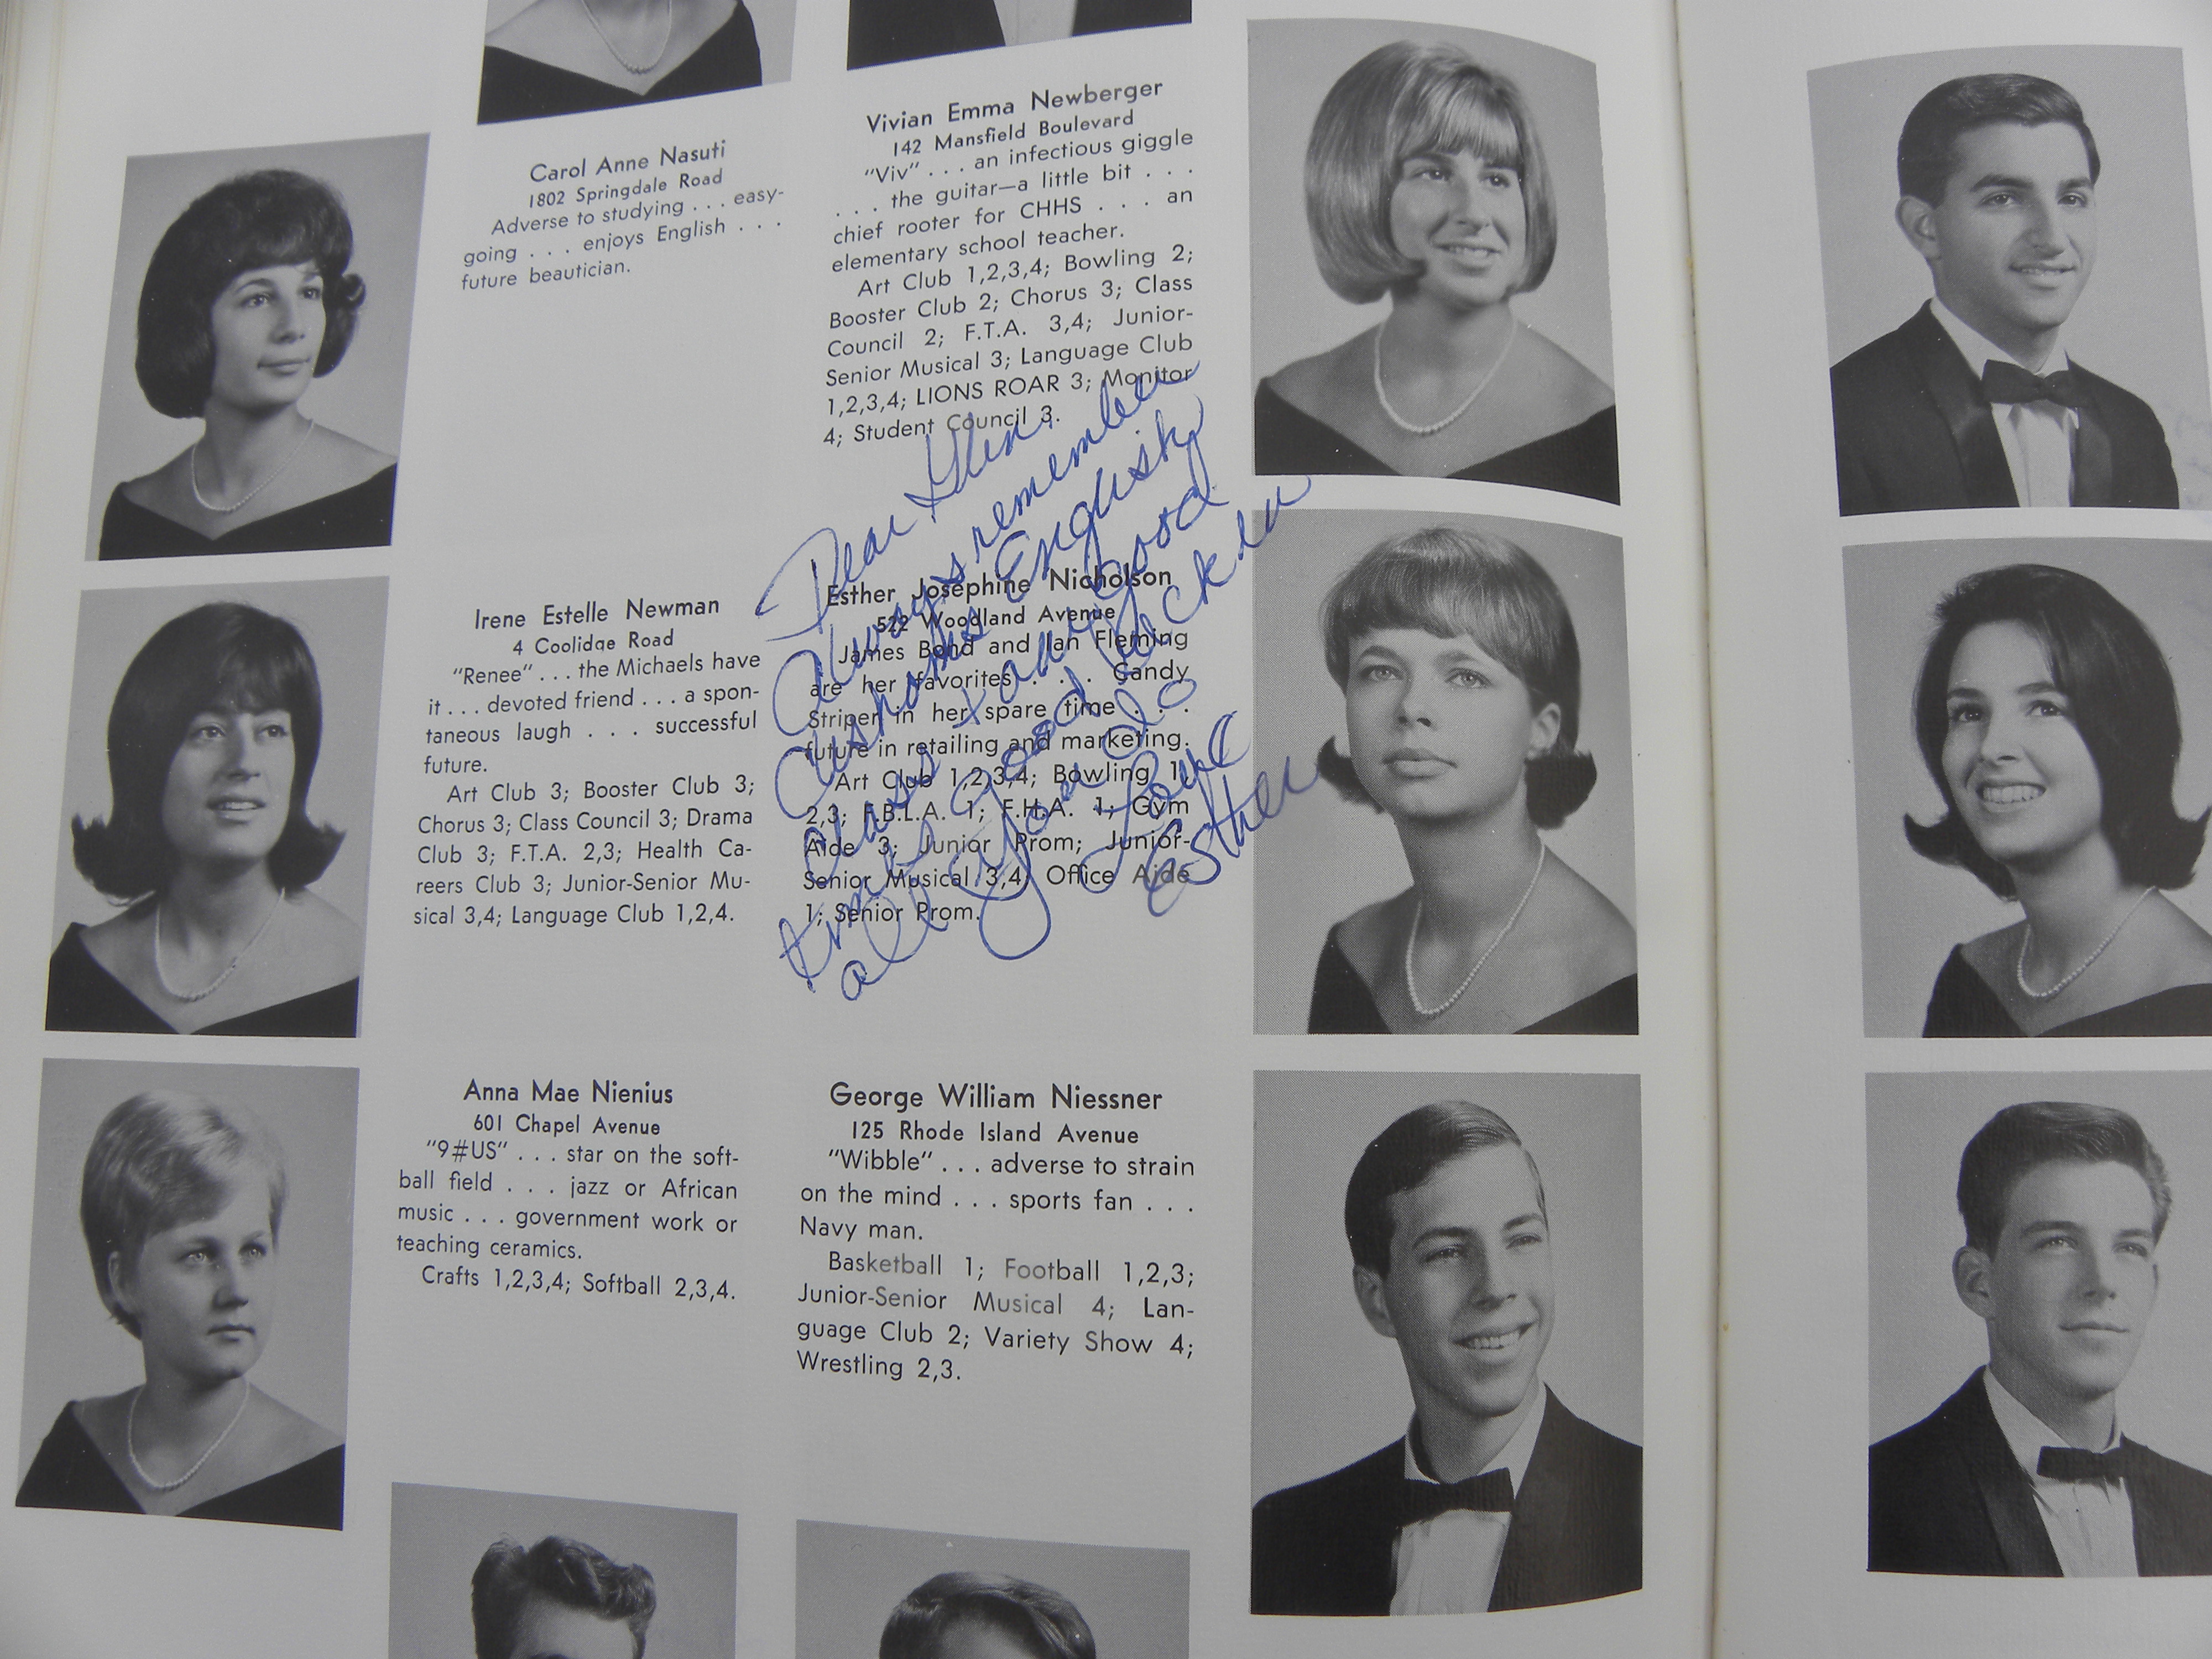 Carol Anne Nasuti
1802 Springdale Road
Adverse to studying . . . easy-
going . . . enjoys English . . .
future beautician.
Vivian Emma Newberger
142 Mansfield Boulevard
"Viv" . . . an infectious giggle
. . . the guitar—a little bit . . .
chief rooter for CHHS . . . an
elementary school teacher.
Art Club 1,2,3,4; Bowling 2;
Booster Club 2; Chorus 3; Class
Council 2; F.T.A. 3,4; Junior-
Senior Musical 3; Language Club
1,2,3,4; LIONS ROAR 3; Monitor
4; Student Council 3.
Irene Estelle Newman
4 Coolidge Road
"Renee" . . . the Michaels have
it . . . devoted friend . . . a spon-
taneous laugh . . . successful
future.
Art Club 3; Booster Club 3;
Chorus 3; Class Council 3; Drama
Club 3; F.T.A. 2,3; Health Ca-
reers Club 3; Junior-Senior Mu-
sical 3,4; Language Club 1,2,4.
Esther Josephine Nicholson
522 Woodland Avenue
James Bond and Ian Fleming
are her favorites . . . Candy
Striper in her spare time . . .
future in retailing and marketing.
Art Club 1,2,3,4; Bowling 1,
2,3; F.B.L.A. 1; F.H.A. 1; Gym
Aide 3; Junior Prom; Junior-
Senior Musical 3,4; Office Aide
1; Senior Prom.
Dear Glen,
Always remember
English
class Good
times Good luck in
all you do
Love
Esther
Anna Mae Nienius
601 Chapel Avenue
"9#US" . . . star on the soft-
ball field . . . jazz or African
music . . . government work or
teaching ceramics.
Crafts 1,2,3,4; Softball 2,3,4.
George William Niessner
125 Rhode Island Avenue
"Wibble" . . . adverse to strain
on the mind . . . sports fan . . .
Navy man.
Basketball 1; Football 1,2,3;
Junior-Senior Musical 4; Lan-
guage Club 2; Variety Show 4;
Wrestling 2,3.